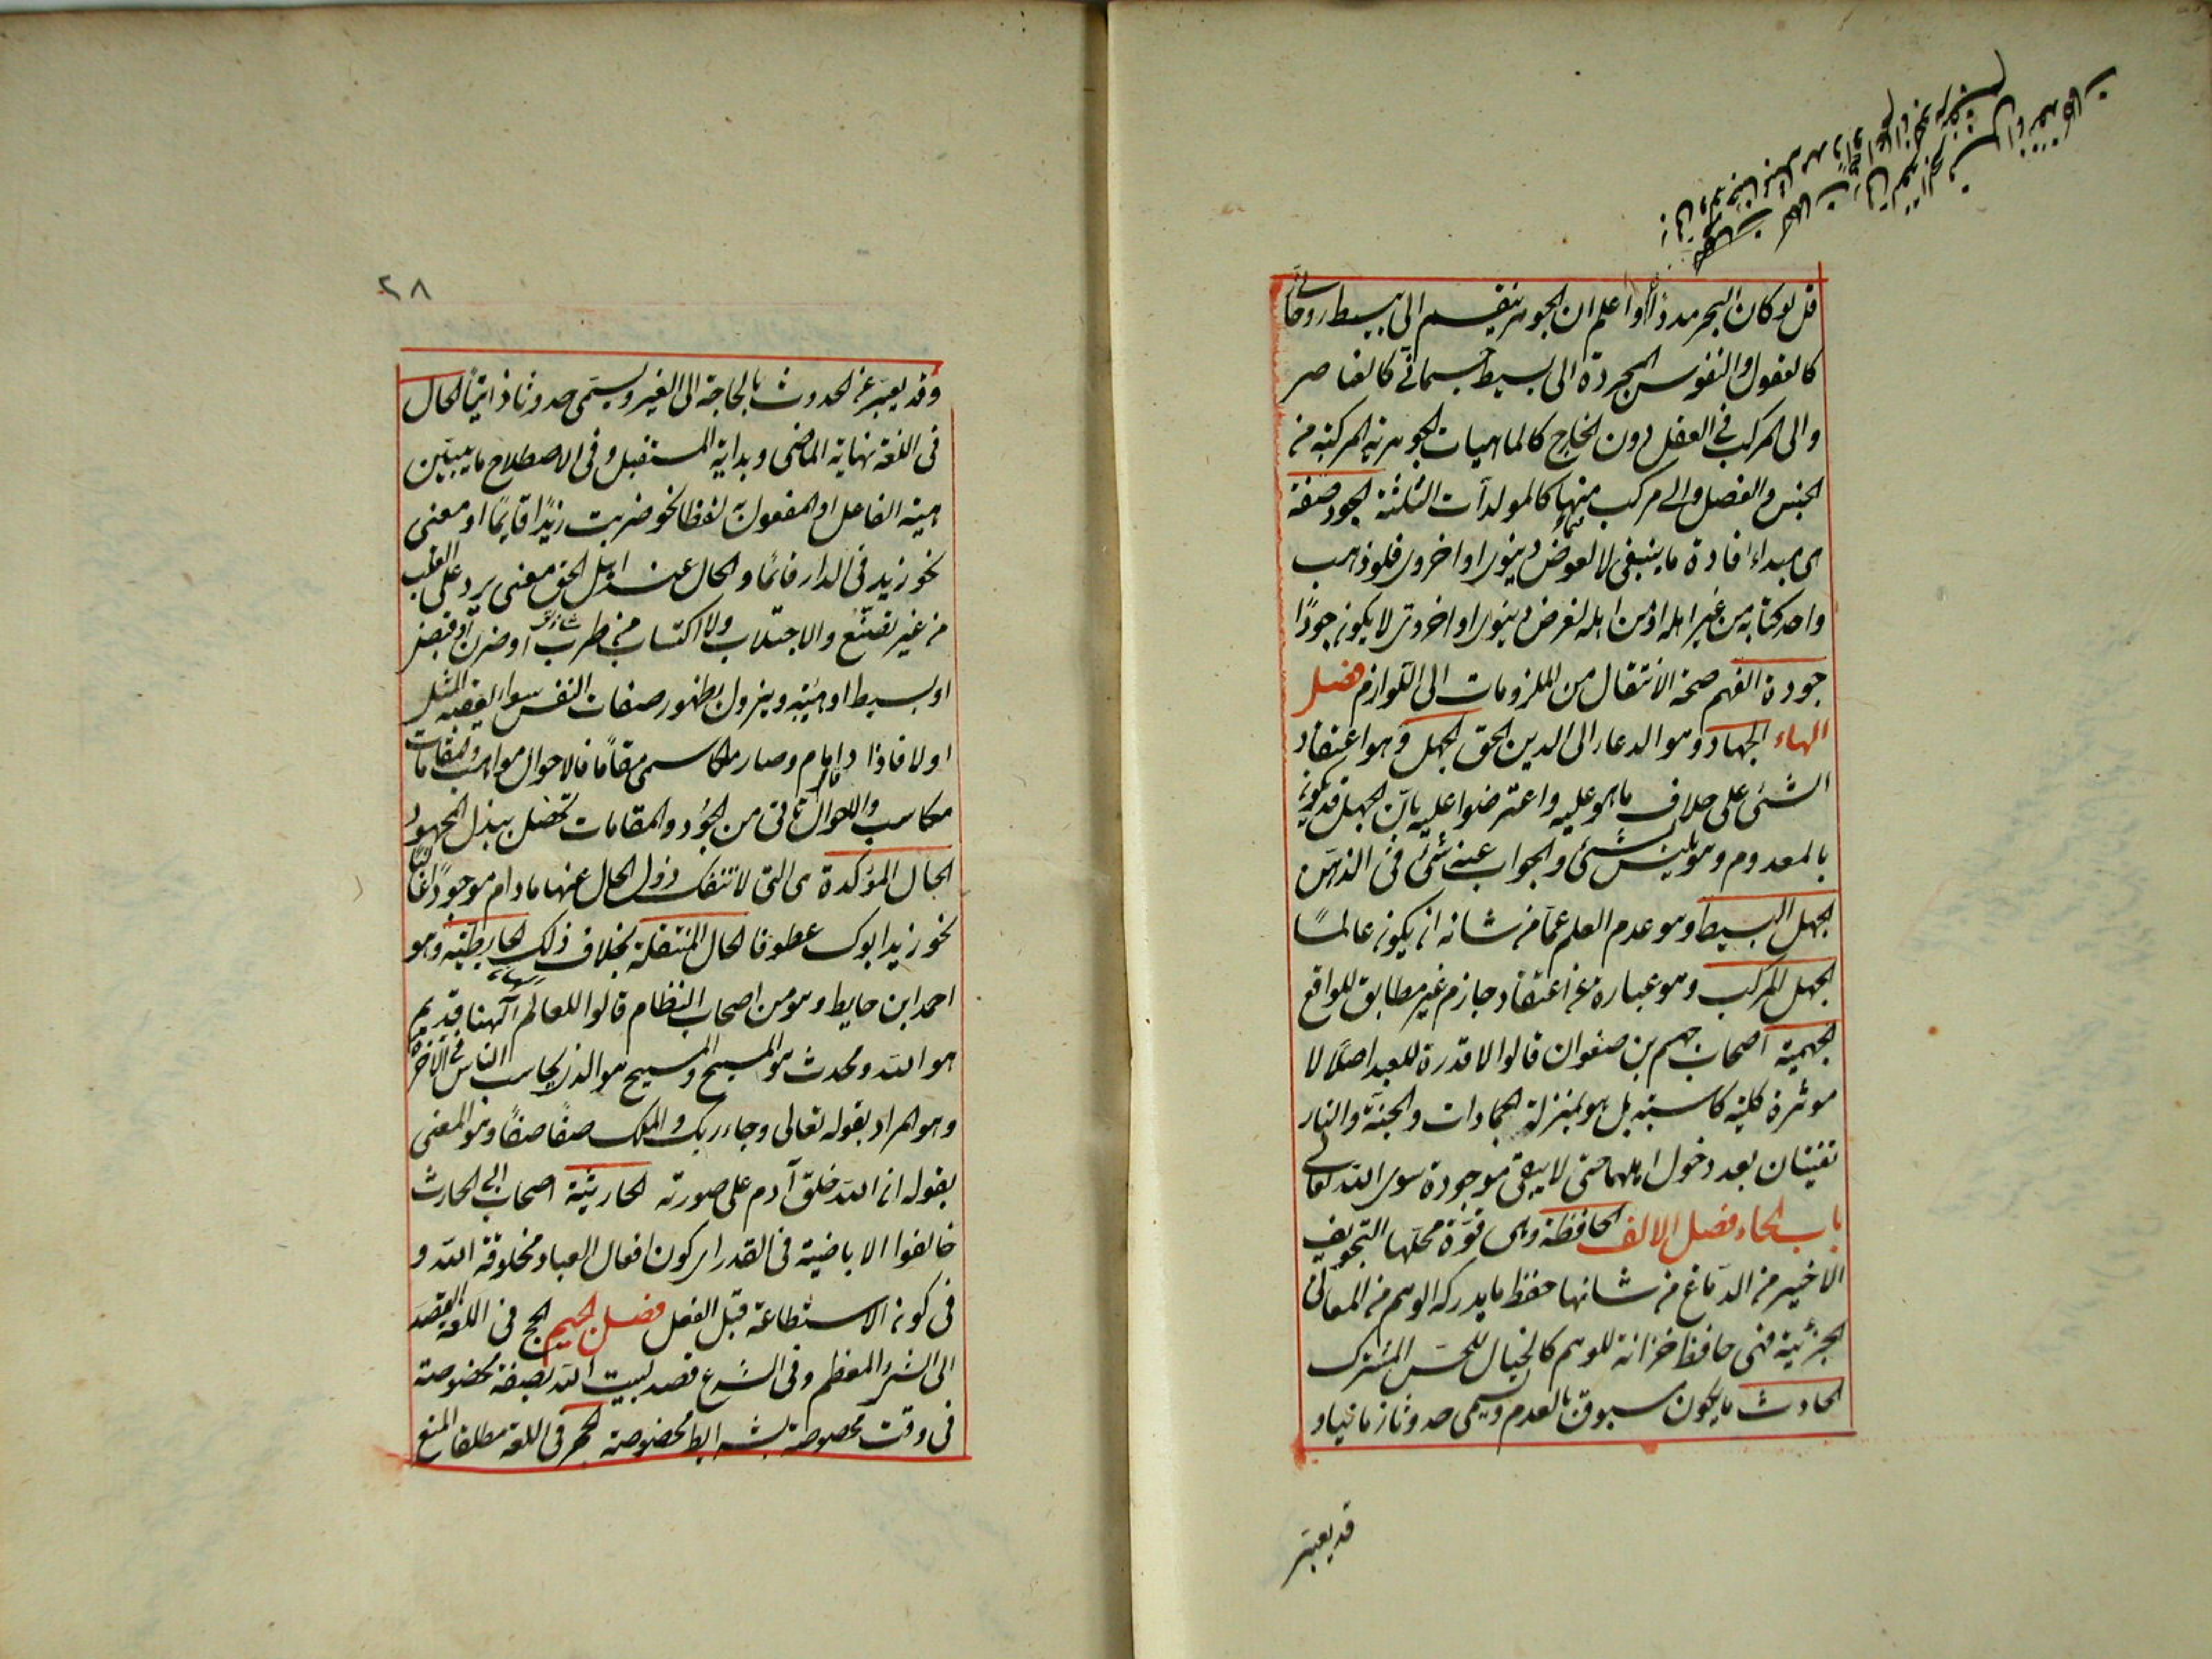 قل لو كان البحر مدادًا واعلم ان الجوهر ينقسم الى بسيط روحاني
كالعقول والنفوس المجردة الى بسيط جسماني كالعناصر
والى المركب في العقل دون الخارج كالماهيات الجوهرية المركبة من
الجنس والفصل والى مركب منهما كالمولدات الثلثة الجود صفة
هي مبداء افادة ما ينبغي لا لعوض دنيوي او اخروي فلو ذهب
واحد كتابه من غير اهله او من اهله لغرض دنيوي او اخروي لا يكون جودًا
جودة الفهم صحة الانتقال من الملزومات الى اللوازم فصل
الهاء الجهاد وهو الدعاء الى الدين الحق الجهل وهو اعتقاد
الشئ على خلاف ما هو عليه واعترضوا عليه بان الجهل قد يكون
بالمعدوم وهو ليس بشئ والجواب عنه شئ في الذهن
الجهل البسيط وهو عدم العلم عما من شانه ان يكون عالمًا
الجهل المركب وهو عبارة عن اعتقاد جازم غير مطابق للواقع
الجهمية اصحاب جهم بن صفوان قالوا لا قدرة للعبد اصلًا لا
موثرة كلية كاسبة بل هو بمنزلة الجمادات والجنة والنار
تفنيان بعد دخول اهلهما حتى لا يبقى موجودة سوى الله تعالى
باب الحاء فصل الالف الحافظة وهي قوة محلها التجويف
الاخير من الدماغ من شانها حفظ ما يدركه الوهم من المعاني
الجزئية فهي حافظ خزانة للوهم كالخيال للحس المشترك
الحادث ما يكون مسبوق بالعدم ويسمى حدوثا زمانيا و
قد يعبر
٢٨
وقد يعبر عن الحدوث بالحاجة الى الغير ويسمى حدوثا ذاتيًا الحال
في اللغة نهاية الماضى وبداية المستقبل وفي الاصطلاح ما يبين
هيئة الفاعل او المفعول به لفظا نحو ضربت زيدًا قايمًا او معنى
نحو زيد في الدار قائمًا والحال عند اهل الحق معنى يرد على القلب
من غير تصنع والاجتلاب ولا اكتساب من طرب او حزن او قبض
او بسيط او هيئة ويزول بظهور صفات النفس سواء يعقبه المثل
اولا فاذا دام وصار ملكا سمى مقامًا فالاحوال مواهب والمقامات
مكاسب والاحوال تاتى من الجود والمقامات تحصل ببذل المجهود
الحال المؤكدة هي التي لا تنفك ذو الحال عنها ما دام موجودًا غالبًا
نحو زيد ابوك عطوفا الحال المنتقلة بخلاف ذلك الحايطية وهو
احمد ابن حايط وهو من اصحاب النظام قالوا للعالم الهنا قديم
هو الله ومحدث هو المسيح والمسيح هو الذي يحاسب الناس في الآخرة
وهو المراد بقوله تعالى وجاء ربك والملك صفًا صفًا وهو المعنى
بقوله ان الله خلق آدم على صورته الحارثية اصحاب ابي الحارث
خالفوا الاباضية في القدر اي كون افعال العباد مخلوقة الله و
في كون الاستطاعة قبل الفعل فصل الجيم الحج في اللغة القصد
الى الشئ المعظم وفي الشرع قصد لبيت الله بصفة مخصوصة
في وقت مخصوصة بشرايط مخصوصة الحجر في اللغة مطلقا المنع